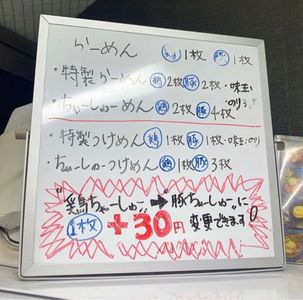 らーめん 鶏1枚 豚1枚
・特製らーめん 鶏2枚 豚2枚・味玉
・ちゃーしゅーめん 鶏2枚 豚4枚 のり3
・特製つけめん 鶏1枚 豚1枚・味玉・のり
・ちゃーしゅーつけめん 鶏1枚 豚3枚
"鶏ちゃーしゅー"➡"豚ちゃーしゅー"に
1枚 +30円 変更できます